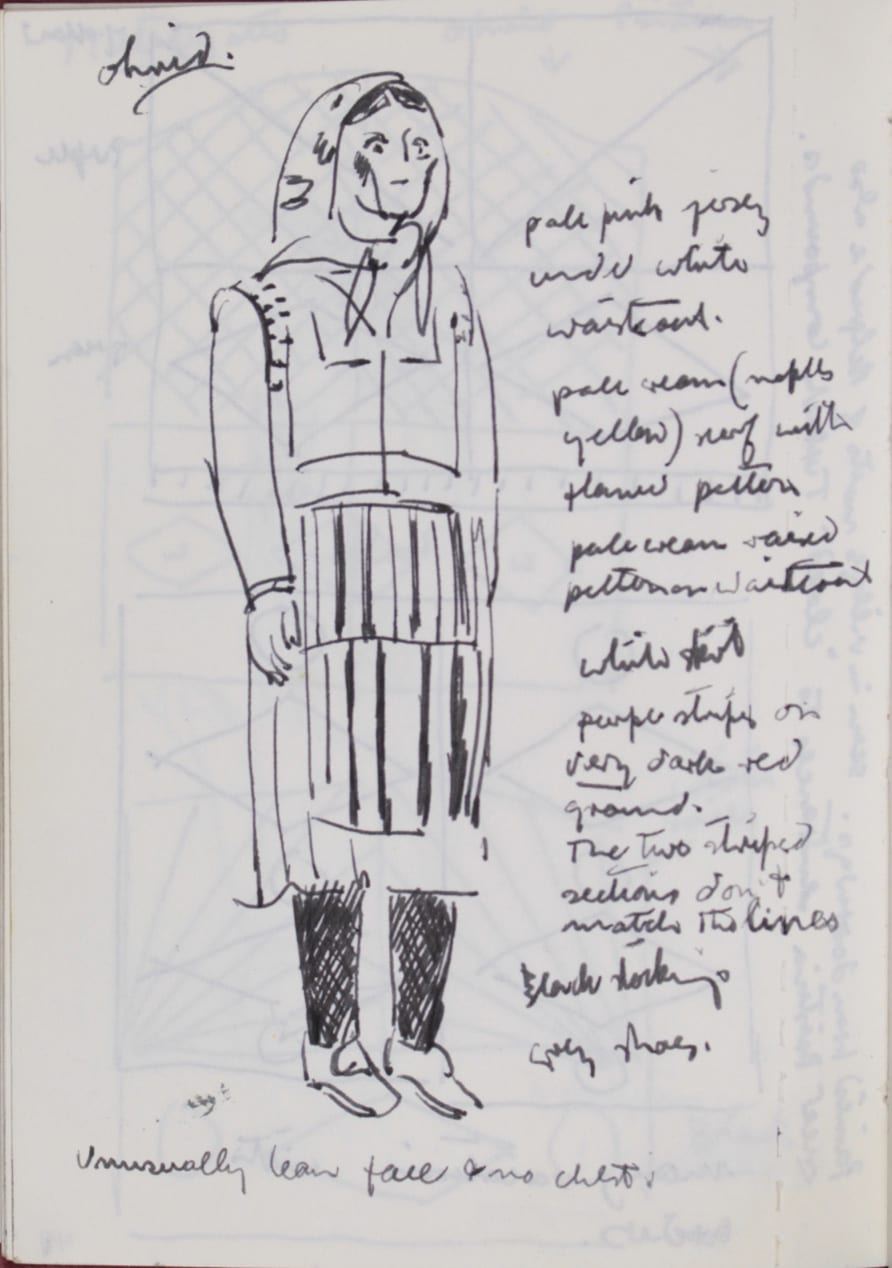 Ohrid.
pale pink jersey
under white
waistcoat.
pale cream (naples
yellow) scarf with
flower pattern
pale cream raised
pattern on waistcoat
white skirt
purple stripes on
very dark red
ground.
The two striped
sections don't
match the lines
black stockings
grey shoes.
Unusually lean face & no chest.